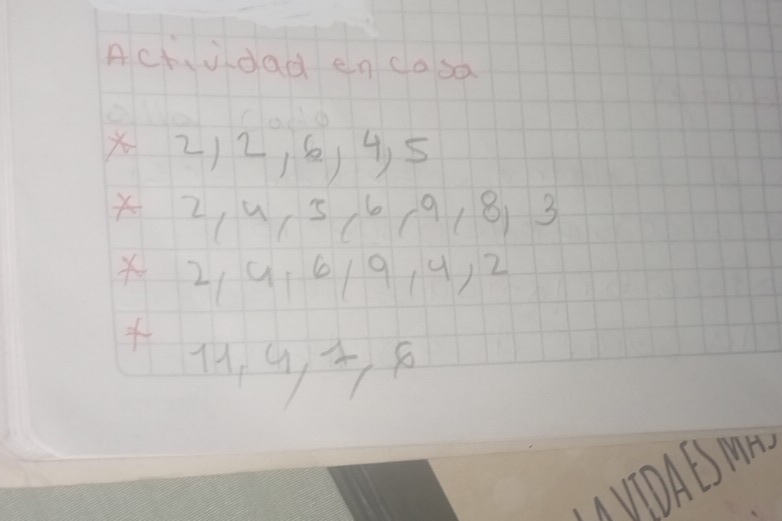 Actividad en casa
* 2, 2, 6, 4, 5
* 2, 4, 5, 6, 9, 8, 3
* 2, 4, 6, 9, 4, 2
* 11, 4, 7, 8
LA VIDA ES MAS